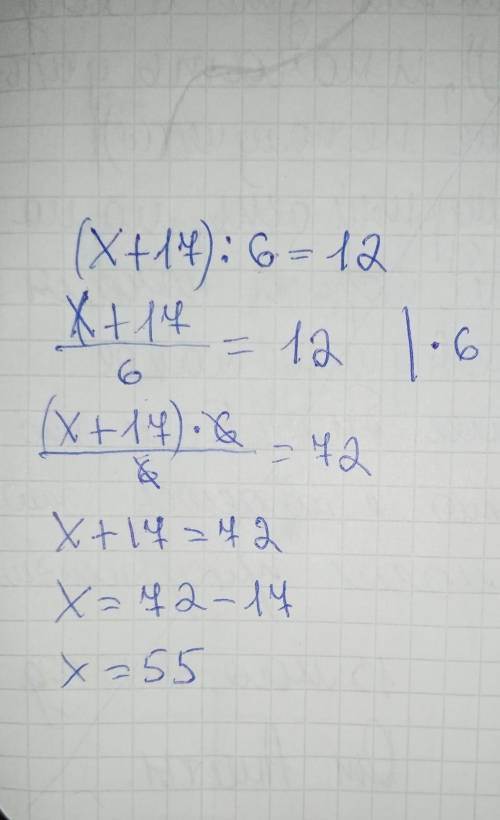 (x+17):6=12
x+17/6 = 12 |·6
(x+17)·6/6 = 72
x+17=72
x=72-17
x=55